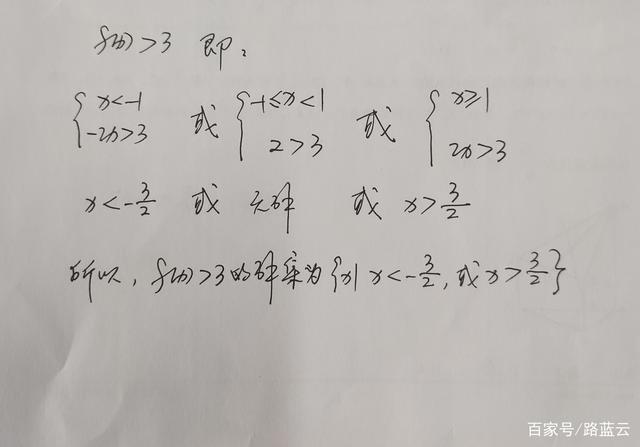 f(x)>3 即:
{x<-1 或 {-1≤x<1 或 {x≥1
-2x>3 2>3 2x>3
x<-3/2 或 无解 或 x>3/2
所以, f(x)>3的解集为{x|x<-3/2, 或x>3/2}
百家号/路蓝云